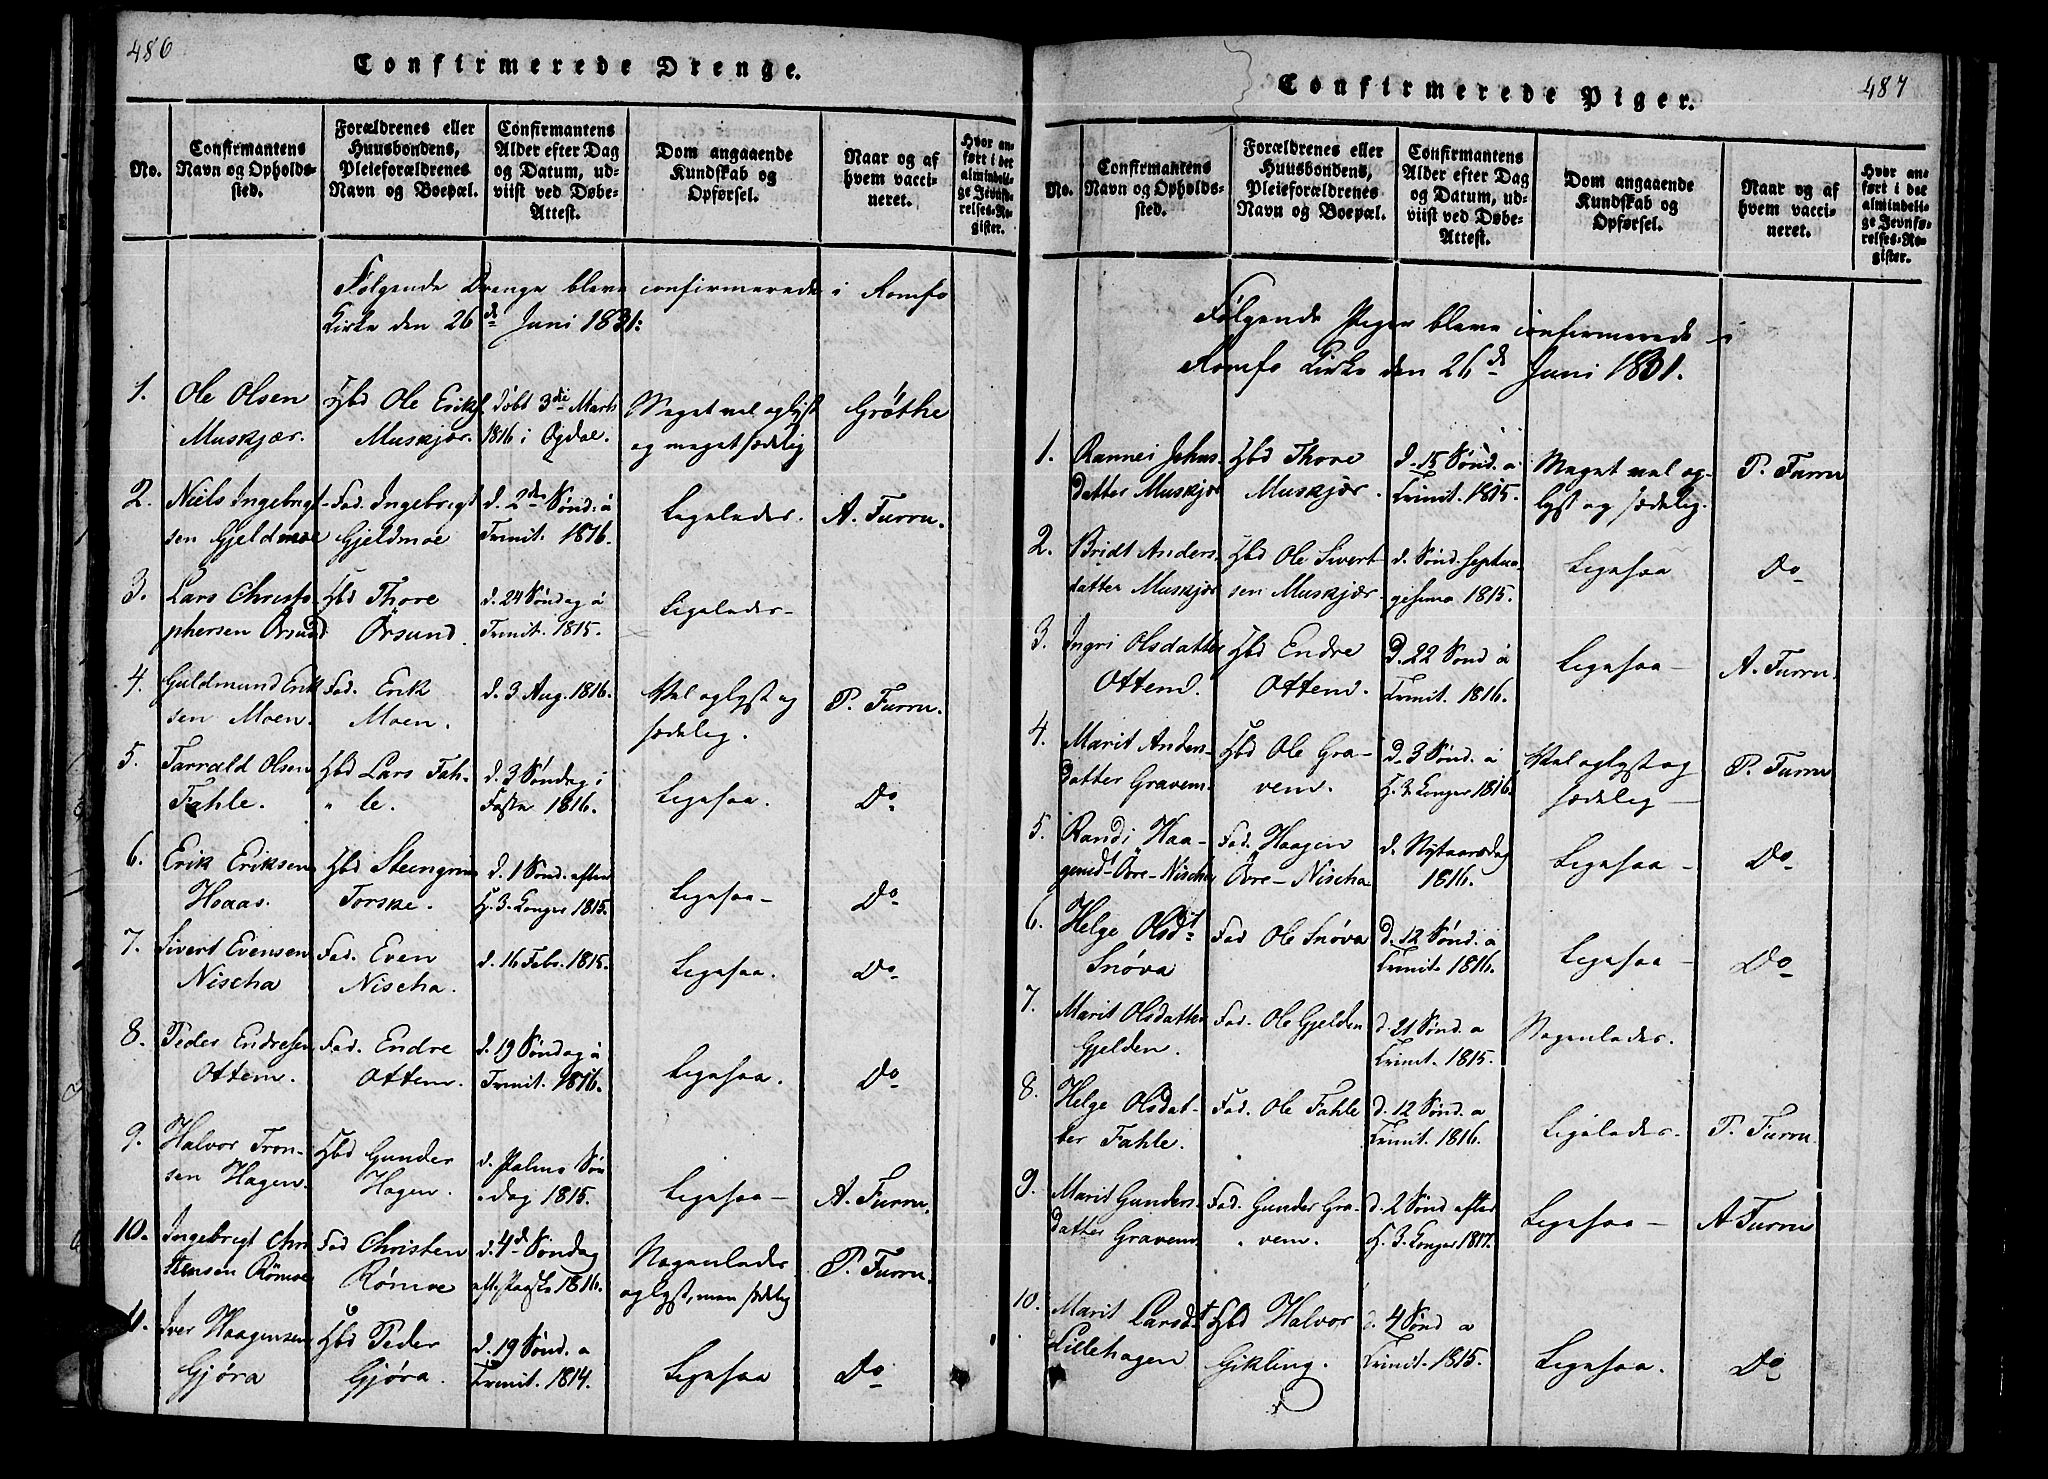 486
Confirmerede Drenge.
No.
Confirmantens
Navn og Opholds-
sted.
Forældrenes eller
Huusbondens,
Pleieforældrenes
Navn og Boepæl.
Confirmantens
Alder efter Dag
og Datum, ud-
viist ved Døbe-
Attest.
Dom angaaende
Kundskab og
Opførsel.
Naar og af
hvem vacci-
neret.
Hvor an-
ført i det
almindeli-
ge Jevnfø-
relses-Re-
gister.
Følgende Drenge bleve confirmerede i Romfo
Kirke den 26de Juni 1831:
1.
Ole Olsen
Muskjær.
Hbd Ole Eriks.
Muskjær.
Døbt 3die Marts
1816 i Ogdal.
Meget vel oplyst
og meget sædelig
Gröthe
2.
Niels Ingebrigt-
sen Gjeldmoe
Fad. Ingebrigt
Gjeldmoe
d. 2den Sönd. à
Trinit. 1816.
Ligeledes.
A. Furru.
3.
Lars Christo-
phersen Örsund
Hbd Thore
Örsund.
d. 24 Söndag à
Trinit. 1815.
Ligeledes-
4.
Guldmund Erik
sen Moen.
Fad. Erik
Moen.
d. 3 Aug. 1816.
Vel oplyst og
sædelig.
P. Furru.
5.
Tarrald Olsen
Fahle.
Hbd Lars Fah-
" le.
d. 3 Söndag i
Faste 1816.
Ligesaa.
Do
6.
Erik Eriksen
Hoaas.
Hbd Steengrim
Torske.
d. 1 Sönd. efter
H. 3. Konger 1815.
Ligesaa-
Do
7.
Sivert Evensen
Nischa
Fad. Even
Nischa.
d. 16 Febr. 1815.
Ligesaa.
Do
8.
Peder Endresen
Ottem.
Fad. Endre
Ottem.
d. 19 Söndag à
Trinit. 1816.
Ligesaa.
Do
9.
Halvor Tron-
sen Hagen.
Hbd Gunder
Hagen.
d. Palme Sön
dag 1815.
Ligesaa-
A. Furru.
10.
Ingebrigt Chri
stensen Römoe
Fad Christen
Römoe
d. 4de Söndag
eft. Paaske 1816.
Nogenledes
oplyst, men sædelig
P. Furru.
11.
Iver Haagensen
Gjöra
Hbd Peder
Gjöra.
d. 19 Sönd. a
Trinit. 1814.
Ligesaa
Do
487
Confirmerede Piger.
No.
Confirmantens
Navn og Opholds-
sted.
Forældrenes eller
Huusbondens,
Pleieforældrenes
Navn og Boepæl.
Confirmantens
Alder efter Dag
og Datum, ud-
viist ved Døbe-
Attest.
Dom angaaende
Kundskab og
Opførsel.
Naar og af
hvem vacci-
neret.
Hvor an-
ført i det
almindeli-
ge Jevnfø-
relses-Re-
gister.
Følgende Piger bleve confirmerede i
Romfo Kirke den 26de Juni 1831.
1.
Rannei Johns-
datter Muskjær
Hbd Thore
Muskjær.
d. 15 Sönd. a
Trinit. 1815.
Meget vel op-
lyst og sædelig.
P. Furru
2.
Bridt Anders
datter Muskjær
Hbd Ole Sivert
sen Muskjær.
d. Sönd. Septua
gesima 1815.
Ligesaa
Do
3.
Ingri Olsdatter
Ottem.
Hbd Endre
Ottem.
d. 22 Sönd à
Trinit. 1816.
Ligesaa-
A. Furru.
4.
Marit Anders-
datter Gravem.
Hbd Ole Gra-
vem.
d. 3 Sönd. à
H. 3. Konger 1816.
Vel oplyst og
sædelig-
P. Furru
5.
Randi Haa-
gensdt Övre-Nischa
Fad. Haagen
Övre-Nischa
d. Nytaarsdag
1816.
Ligesaa-
Do
6.
Helge Olsdt
Snöva
Fad Ole Snöva
d. 12 Sönd. à
Trinit. 1816.
Ligesaa-
Do
7.
Marit Olsdatter
Gjelden.
Fad. Ole Gjelden
d. 21 Sönd. a
Trinit. 1815.
Nogenledes.
8.
Helge Olsdat-
ter Fahle.
Fad. Ole Fahle
d. 12 Sönd. a
Trinit. 1816.
Ligeledes.
P. Furru.
9.
Marit Gunders-
datter Gravem
Fad. Gunder Gra-
vem.
d. 2 Sönd efter
H. 3. Konger 1817.
Ligesaa-
A Furru
10.
Marit Larsdt
Lillehagen
Hbd Halvor
Gikling.
d. 4 Sönd a
Trinit. 1815.
Ligesaa.
Do